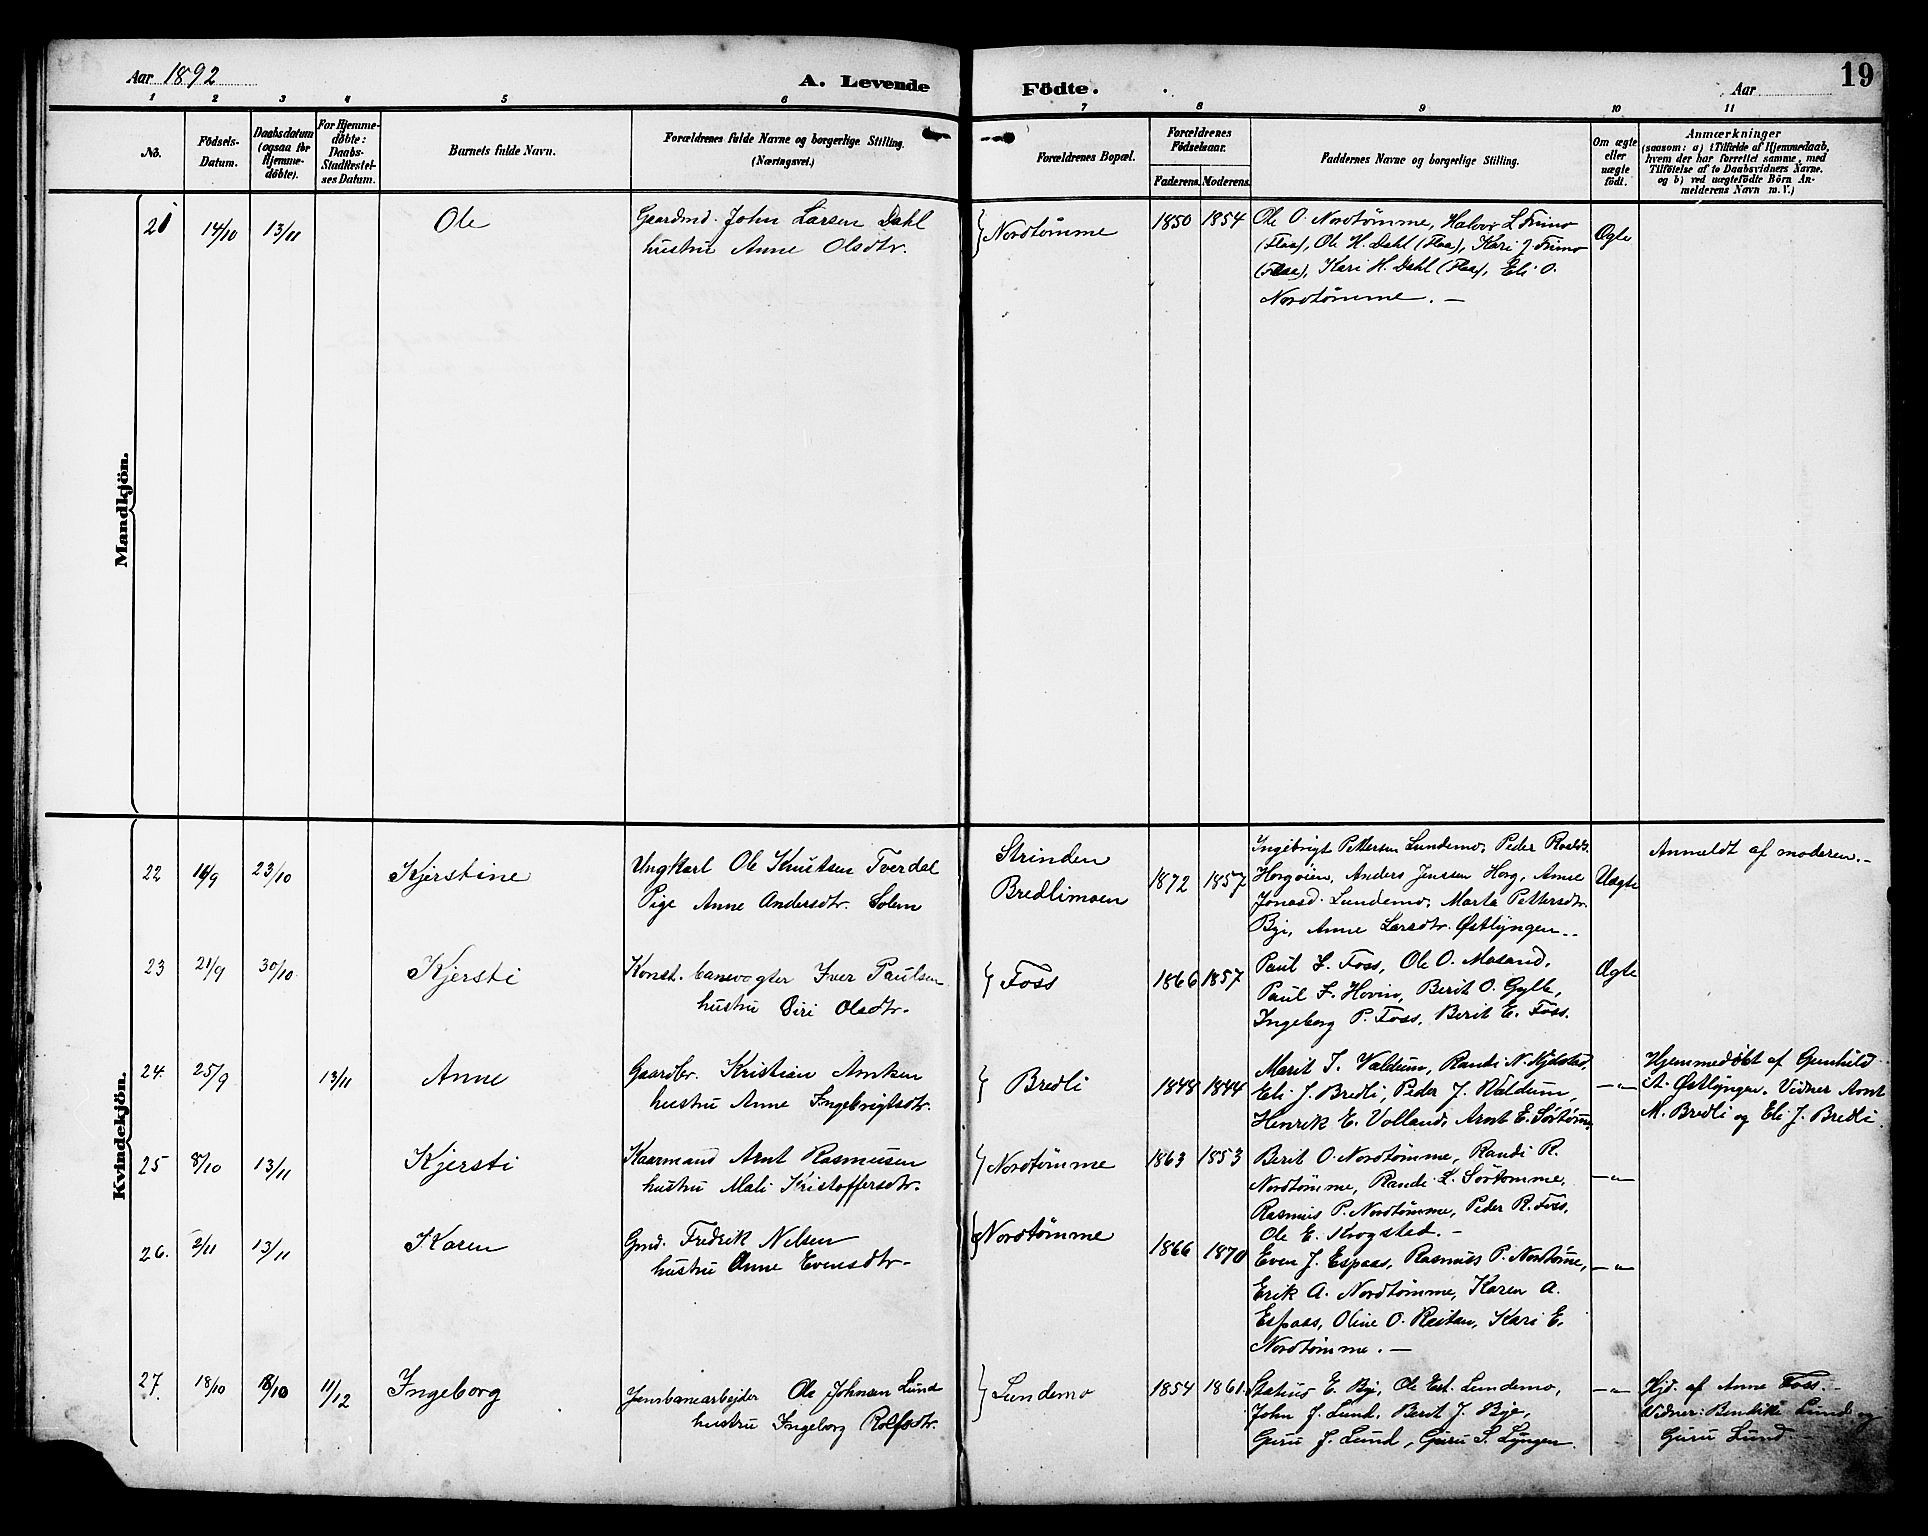 Aar 1892
A. Levende Födte.
Aar
19
1 2 3 4 5 6 7 8 9 10 11
No.
Födsels-Datum.
Daabsdatum (ogsaa for Hjemme-döbte).
For Hjemme-döbte: Daabs-Stadfæstel-ses Datum.
Barnets fulde Navn.
Forældrenes fulde Navne og borgerlige Stilling.
(Næringsvei.)
Forældrenes Bopæl.
Forældrenes Födselsaar.
Faderens. Moderens.
Faddernes Navne og borgerlige Stilling.
Om ægte eller uægte födt.
Anmærkninger
(saasom: a) i Tilfælde af Hjemmedaab,
hvem der har forrettet samme, med
Tilföielse af to Daabsvidners Navne.
og b) ved uægtefödte Börn An-
melderens Navn m. V.)
Mandkjön.
21 14/10 13/11 Ole
Gaardmd. John Larsen Dahl
hustru Anne Olsdtr.
Nordtømme
1850 1854
Ole O. Nordtømme, Halvor L. Frimo
(Flaa), Ole H. Dahl (Flaa), Kari J. Frimo
(Flaa), Kari H. Dahl (Flaa), Eli O.
Nordtømme. —
Ægte
Kvindekjön.
22 16/9 23/10 Kjerstine
Ungkarl Ole Knutsen Tverdal
Pige Anne Andersdtr. Solem
Strinden
Bredlimoen
1872 1857
Ingebrigt Pettersen Lundemo, Peder
Horgøien, Anders Jenssen Horg, Anne
Jonasd. Lundemo, Marta Pettersdtr.
By, Anne Larsdtr. Østlyngen..
Uægte
Anmeldt af moderen.-
23 21/9 30/10 Kjersti
Konst. banevogter Iver Paulsen
hustru Siri Olsdtr.
Foss
1866 1857
Paul L. Foss, Ole O. Mosand,
Paul F. Hovin, Berit O. Gylle,
Ingeborg P. Foss, Berit E. Foss.
Ægte
24. 25/9 13/11 Anne
Gaardbr. Kristian Arntsen
hustru Anne Ingebrigtsdtr.
Bredli
1848 1844
Marit I. Valdum, Randi N.
Eli J. Bredli, Peder J. Valdum,
Henrik E. Volland, Arnt E. Sørtømme
—"—
Hjemmedøbt af Gunhild
A. Østlyngen, Vidner Arnt
M. Bredli og Eli J. Bredli.
25 8/10 13/11 Kjersti
Kaarmand Arnt Rasmusen
hustru Mali Kristoffersdtr.
Nordtømme
1863 1853
Berit O. Nordtømme, Randi R.
Nordtømme, Randi L. Sørtømme,
Rasmus P. Nordtømme, Peder R. Foss,
Ole E. Krogsted.—
—"—
26. 2/11 13/11 Karen
Gmd. Fredrik Nilsen
hustru Anne Evensdtr.
Nordtømme
1866 1870
Even J. Espaas, Rasmus P. Nordtømme,
Erik A. Nordtømme, Karen A.
Espaas, Oline O. Reitan, Kari E.
Nordtømme. —
—"—
27. 18/10 18/10 11/12 Ingeborg
Jernbanearbejder Ole Johnsen Lund
hustru Ingeborg Rolfsdtr.
Lundemo
1854 1861
Statius E. By, Ole Est. Lundemo,
John J. Lund, Berit J. Bye,
Guru J. Lund, Guru S. Lyngen.
—"—
Hjd. af Anne Foss.-
Vidner: Bendikt Lund og
Guru Lund